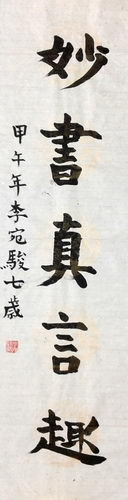 妙書真言趣
甲午年李宛駿七歲